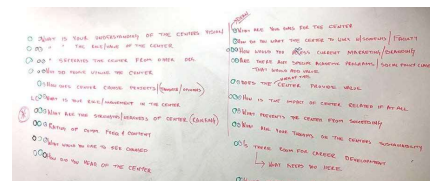 WHAT IS YOUR UNDERSTANDING OF THE CENTERS VISION
" " " THE ROLE/VALUE OF THE CENTER
" SEPERATES THE CENTER FROM OTHER DEP.
HOW DO PEOPLE OUTSIDE THE CENTER
HOW DOES CENTER CHOOSE PROJECTS
WHAT IS YOUR ROLE/INVOLVEMENT IN THE CENTER
WHAT ARE THE STRENGTHS/WEAKNESS OF CENTER
RATING OF EVENT FEED & CONTENT
WHAT WOULD YOU LIKE TO SEE CHANGED
HOW DID YOU HEAR OF THE CENTER
WHAT ARE YOUR GOALS FOR THE CENTER
HOW DO YOU WANT THE CENTER TO WORK W/STUDENTS/FACULTY
HOW WOULD YOU ASSESS CURRENT MARKETING/BRANDING
ARE THERE ANY SPECIAL ACADEMIC PROGRAMS/
THAT WOULD ADD VALUE
DOES THE CENTER PROVIDE VALUE
HOW IS THE IMPACT OF CENTER RELATED IF AT ALL
WHAT PREVENTS THE CENTER FROM SOMETHING
WHAT ARE YOUR THOUGHTS ON THE CENTERS SUSTAINABILITY
IS THERE ROOM FOR CAREER DEVELOPMENT
→ WHAT KEEPS YOU HERE